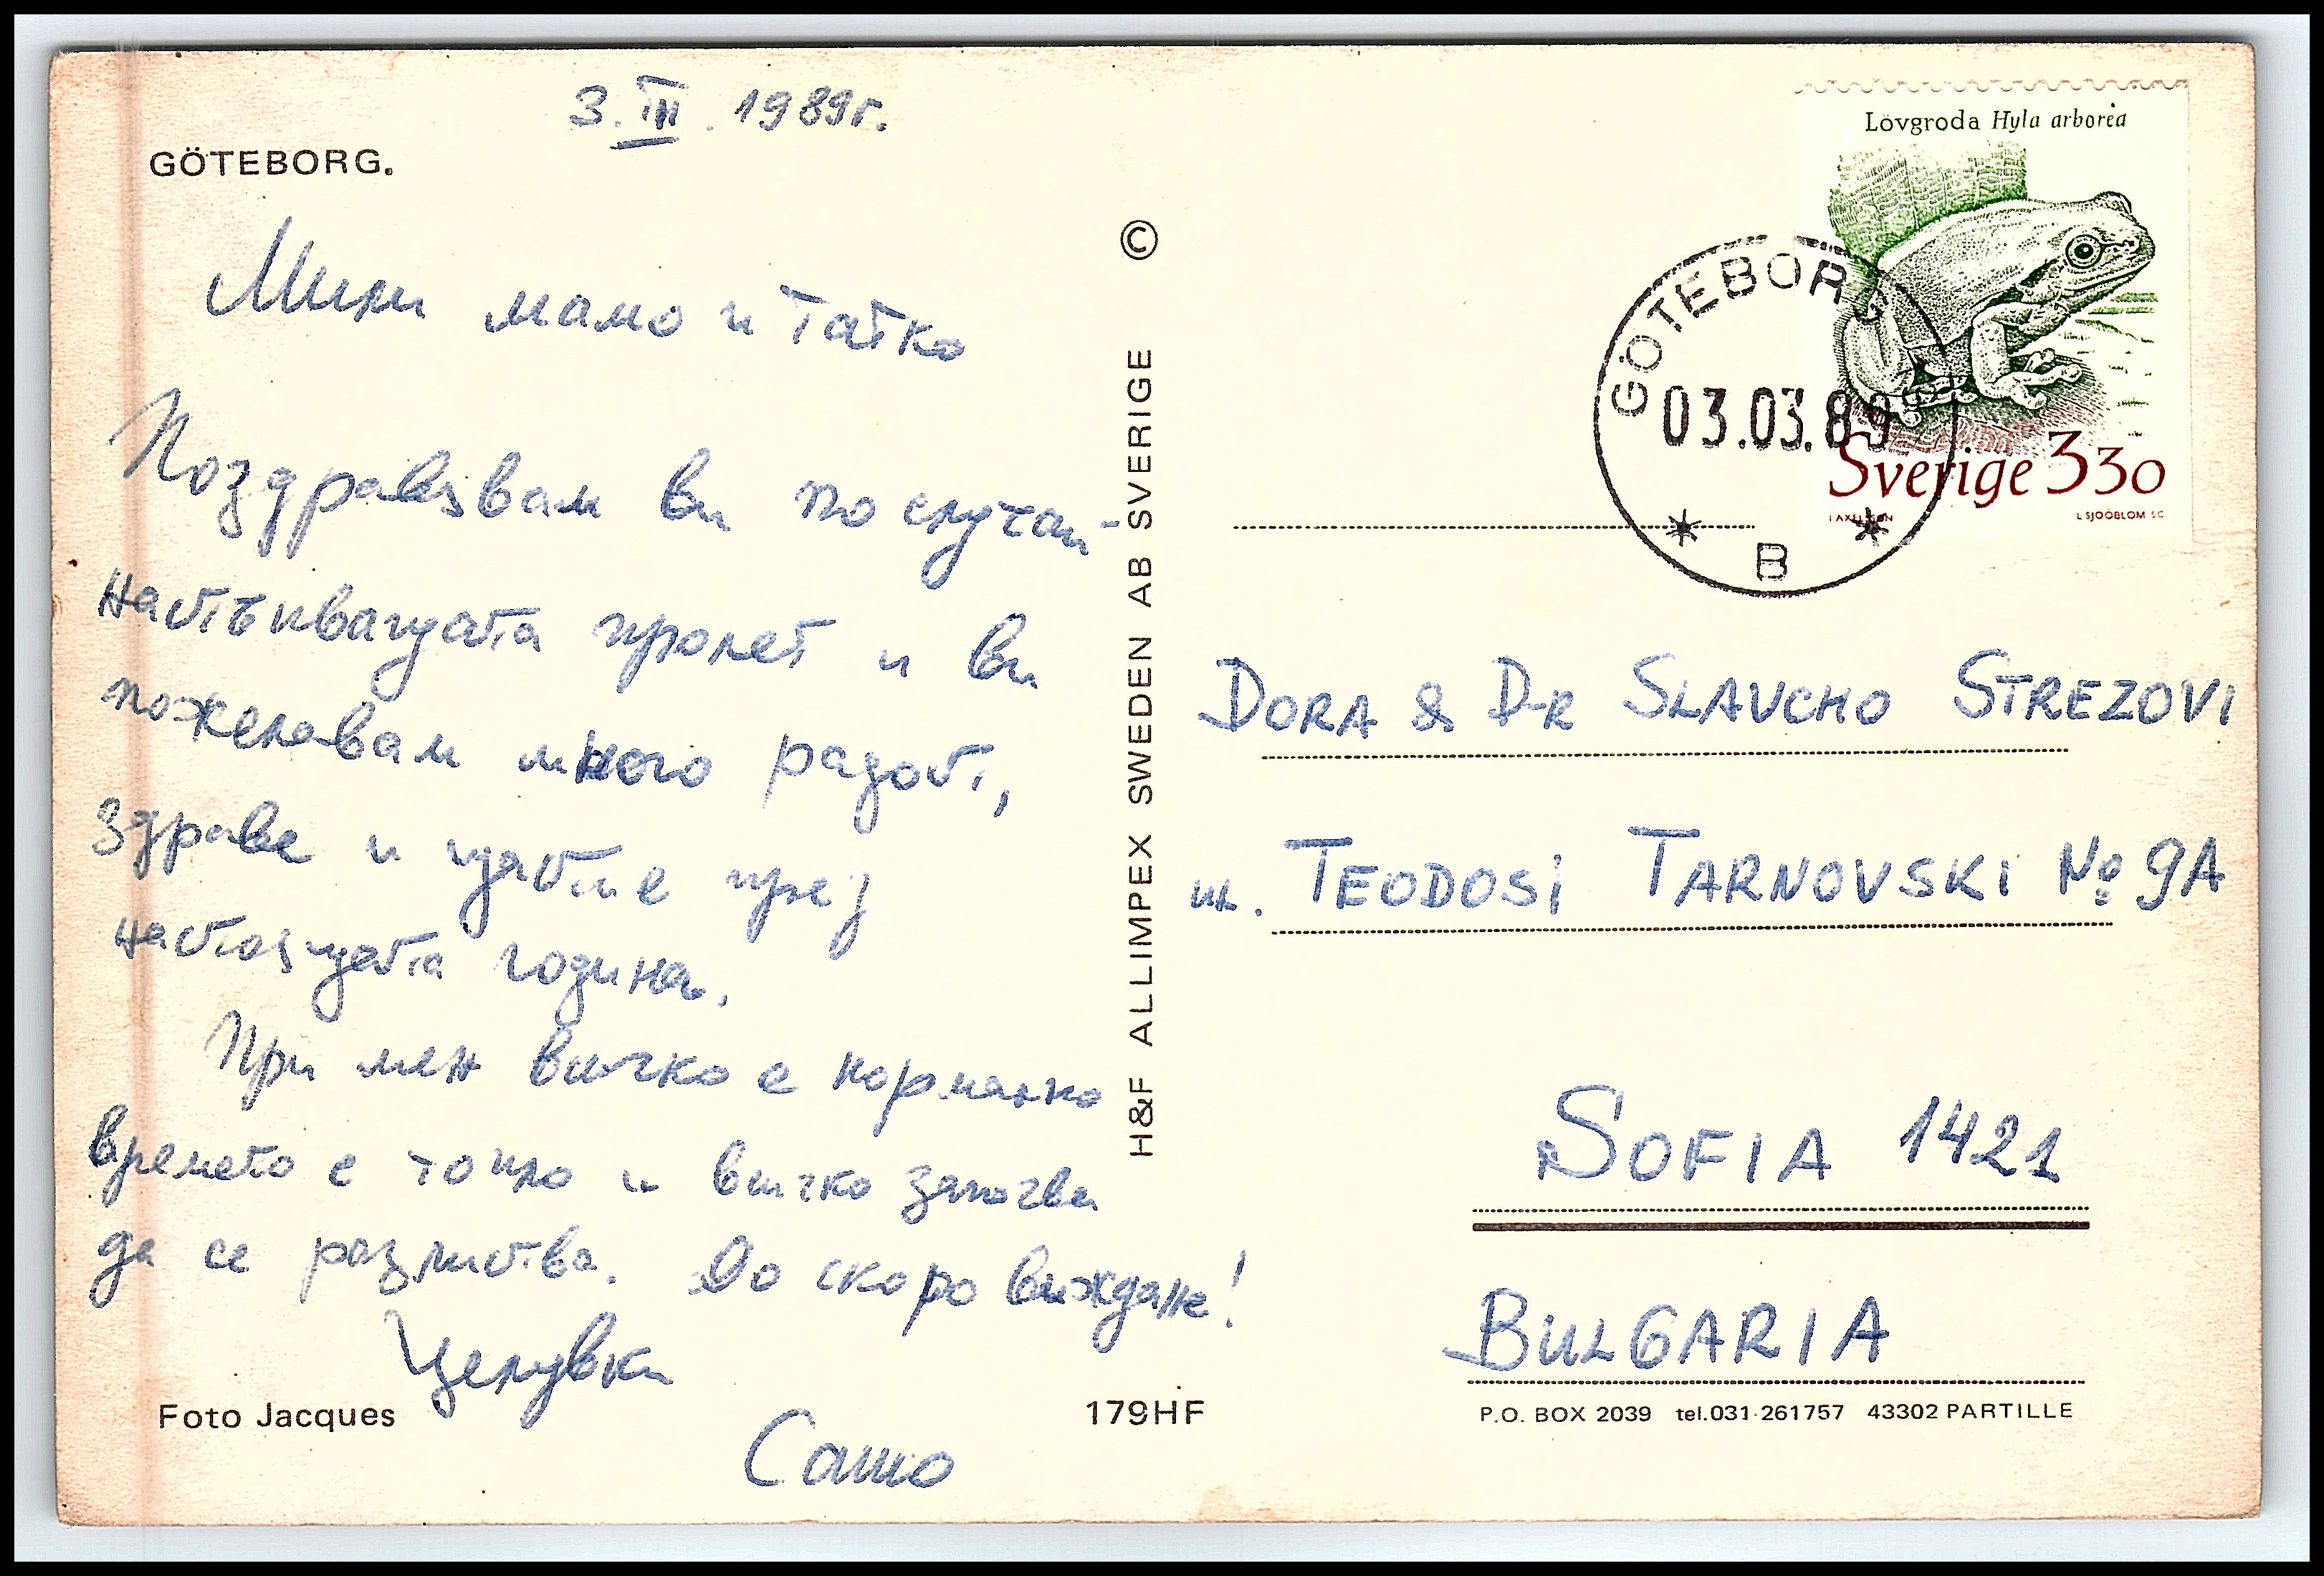 3.III.1989г.
GÖTEBORG.
Мили мамо и татко
Поздравявам ви по случай
настъпващата пролет и ви
пожелавам много радост,
здраве и щастие през
настоящата година.
При мен вичко е нормално
времето е топло и вичко започва
да се разлиства. До скоро виждане!
Целувки
Сашо
Foto Jacques
179HF
©
H&F ALLIMPEX SWEDEN AB SVERIGE
Lövgroda Hyla arborea
GÖTEBORG
03.03.89
Sverige 330
L SJÖÖBLOM SC
* B *
DORA & D-R SLAVCHO STREZOVI
ul. TEODOSI TARNOVSKI No 9A
SOFIA 1421
BULGARIA
P.O. BOX 2039 tel.031-261757 43302 PARTILLE